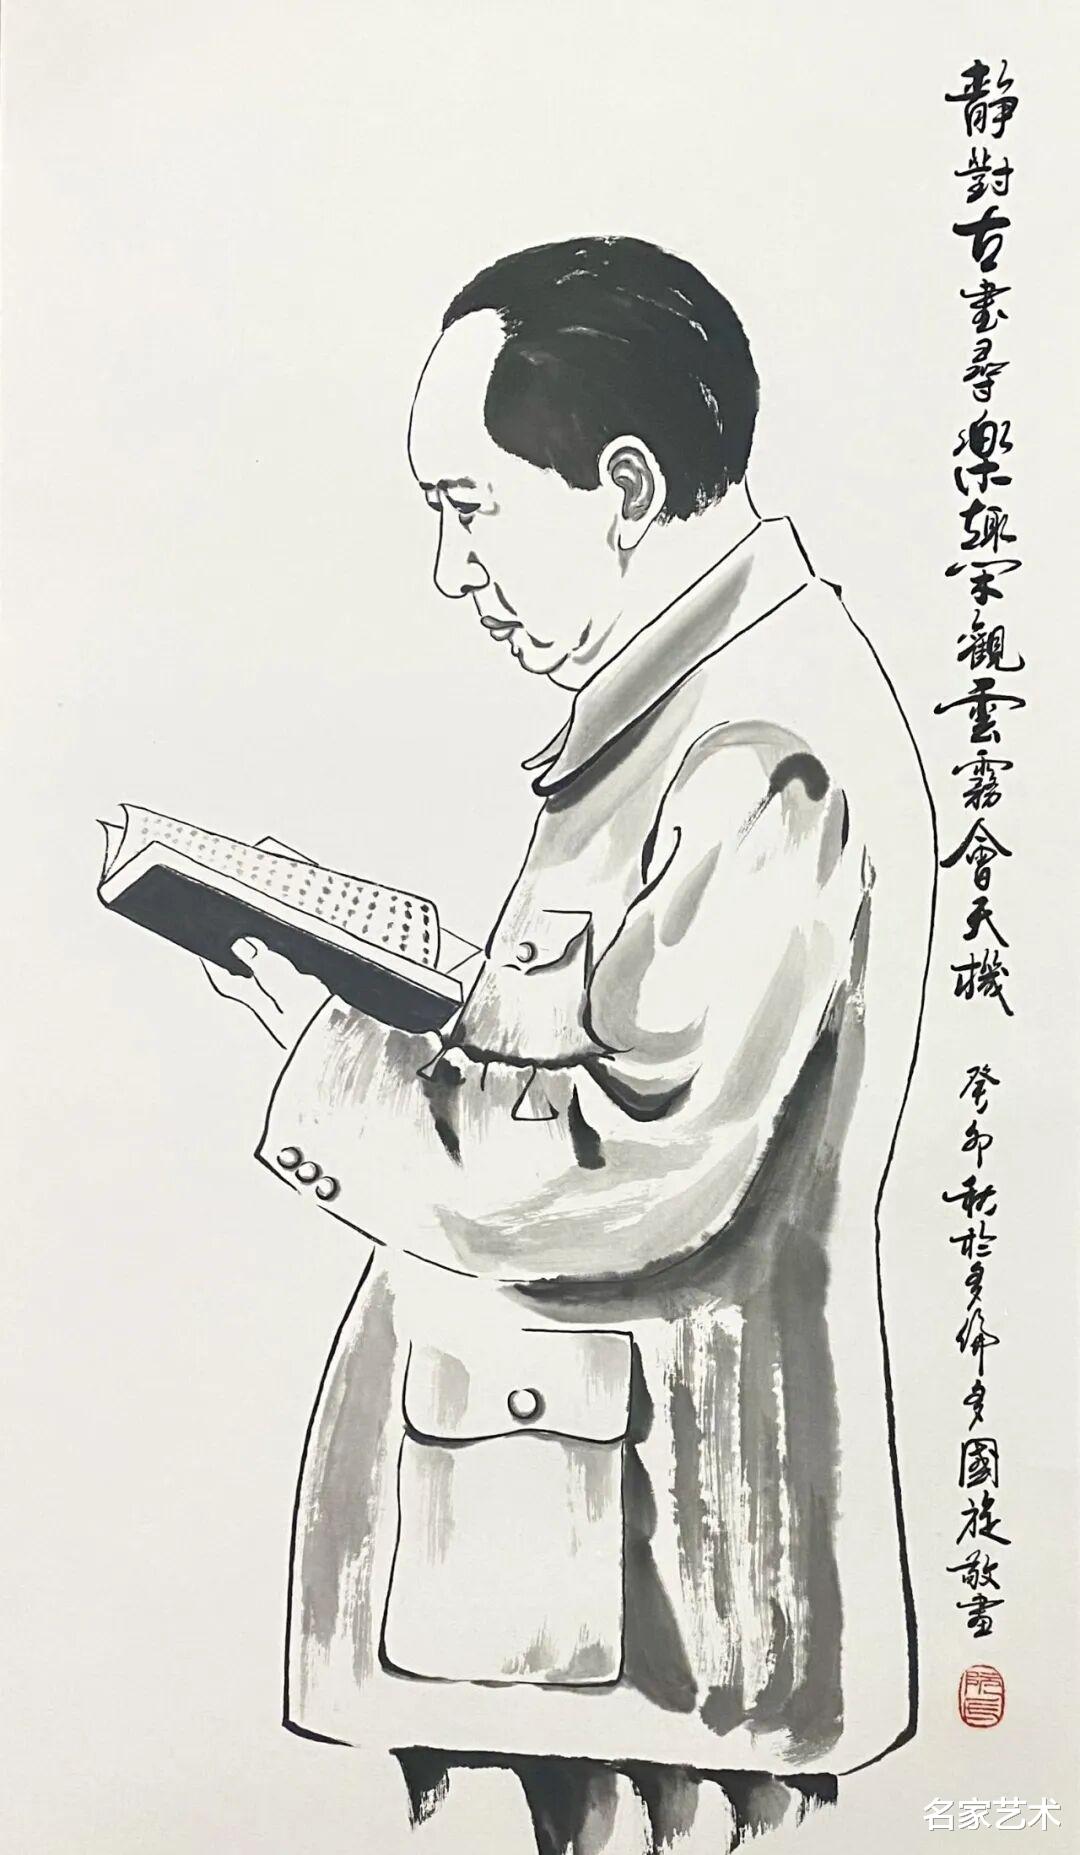 靜對古書尋樂趣閑觀雲霧會天機
癸卯秋於多倫多國旋敬畫
名家艺术